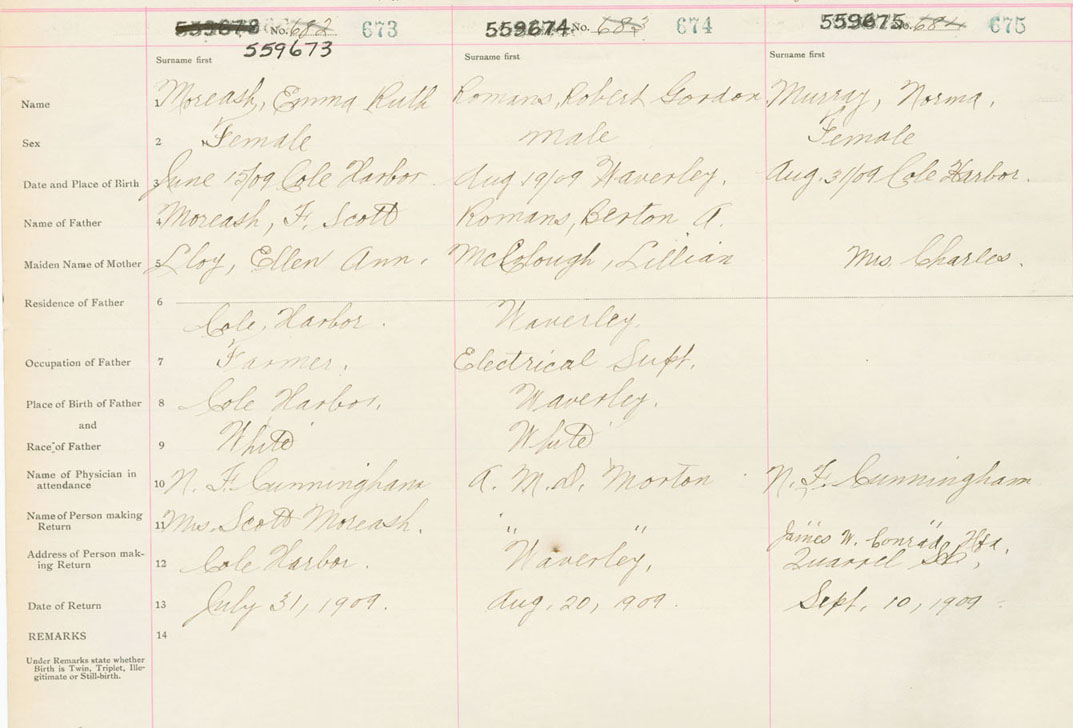 559673 No. 682 673 559674 No. 683 674 559675 No. 684 675
559673
Surname first Surname first Surname first
Name 1 Moreash, Emma Ruth Romans, Robert Gordon Murray, Norma.
Sex 2 Female male Female
Date and Place of Birth 3 June 15/09 Cole Harbor. Aug 19/09 Waverley. Aug. 31/09 Cole Harbor.
Name of Father 4 Moreash, F. Scott Romans, Berton A.
Maiden Name of Mother 5 Lloy, Ellen Ann. McColough, Lillian Mrs. Charles.
Residence of Father 6
Cole Harbor. Waverley.
Occupation of Father 7 Farmer. Electrical Supt.
Place of Birth of Father 8 Cole Harbor. Waverley.
and
Race of Father 9 White White
Name of Physician in
attendance 10 N. F. Cunningham A. M. D. Morton N. F. Cunningham
Name of Person making
Return 11 Mrs. Scott Moreash. " " " "
James W. Conrad, Hfx,
Address of Person mak-
ing Return 12 Cole Harbor. Waverley, Quarrel St,
Date of Return 13 July 31, 1909. Aug. 20, 909. Sept. 10, 1909.
REMARKS 14
Under Remarks state whether
Birth is Twin, Triplet, Ille-
gitimate or Still-birth.